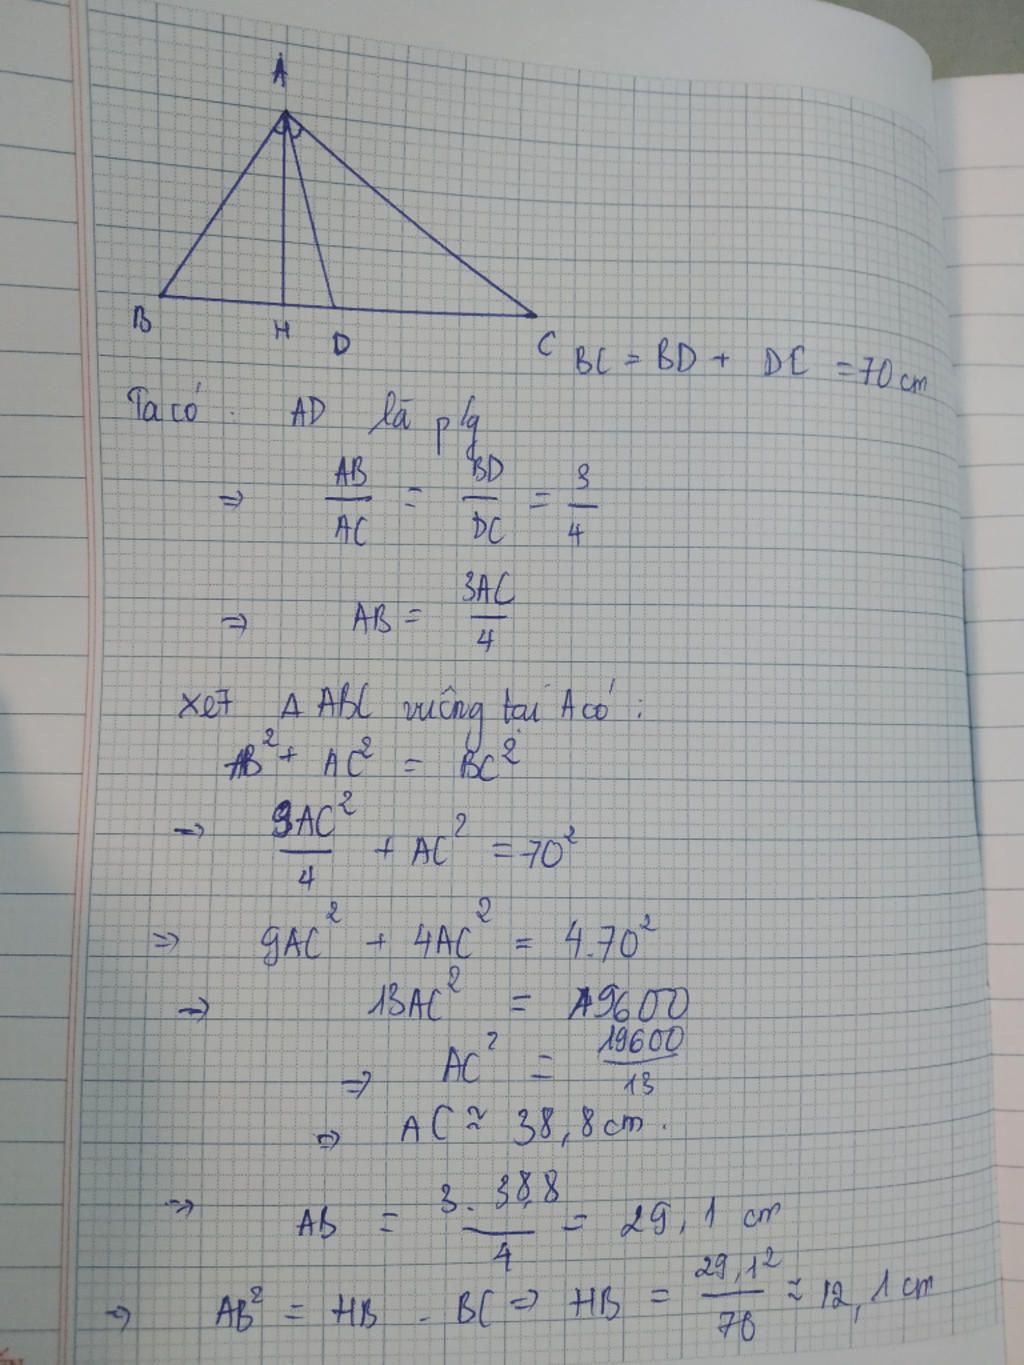 A
B H D C
BC = BD + DC = 70 cm
Ta có: AD là p/g
⇒ AB/AC = BD/DC = 3/4
⇒ AB = 3AC/4
Xét Δ ABC vuông tại A có:
AB² + AC² = BC²
⇒ 9AC²/4 + AC² = 70²
⇒ 9AC² + 4AC² = 4.70²
⇒ 13AC² = 19600
⇒ AC² = 19600/13
⇒ AC ≈ 38,8 cm.
⇒ AB = 3.38,8/4 = 29,1 cm
⇒ AB² = HB . BC ⇒ HB = 29,1²/70 ≈ 12,1 cm